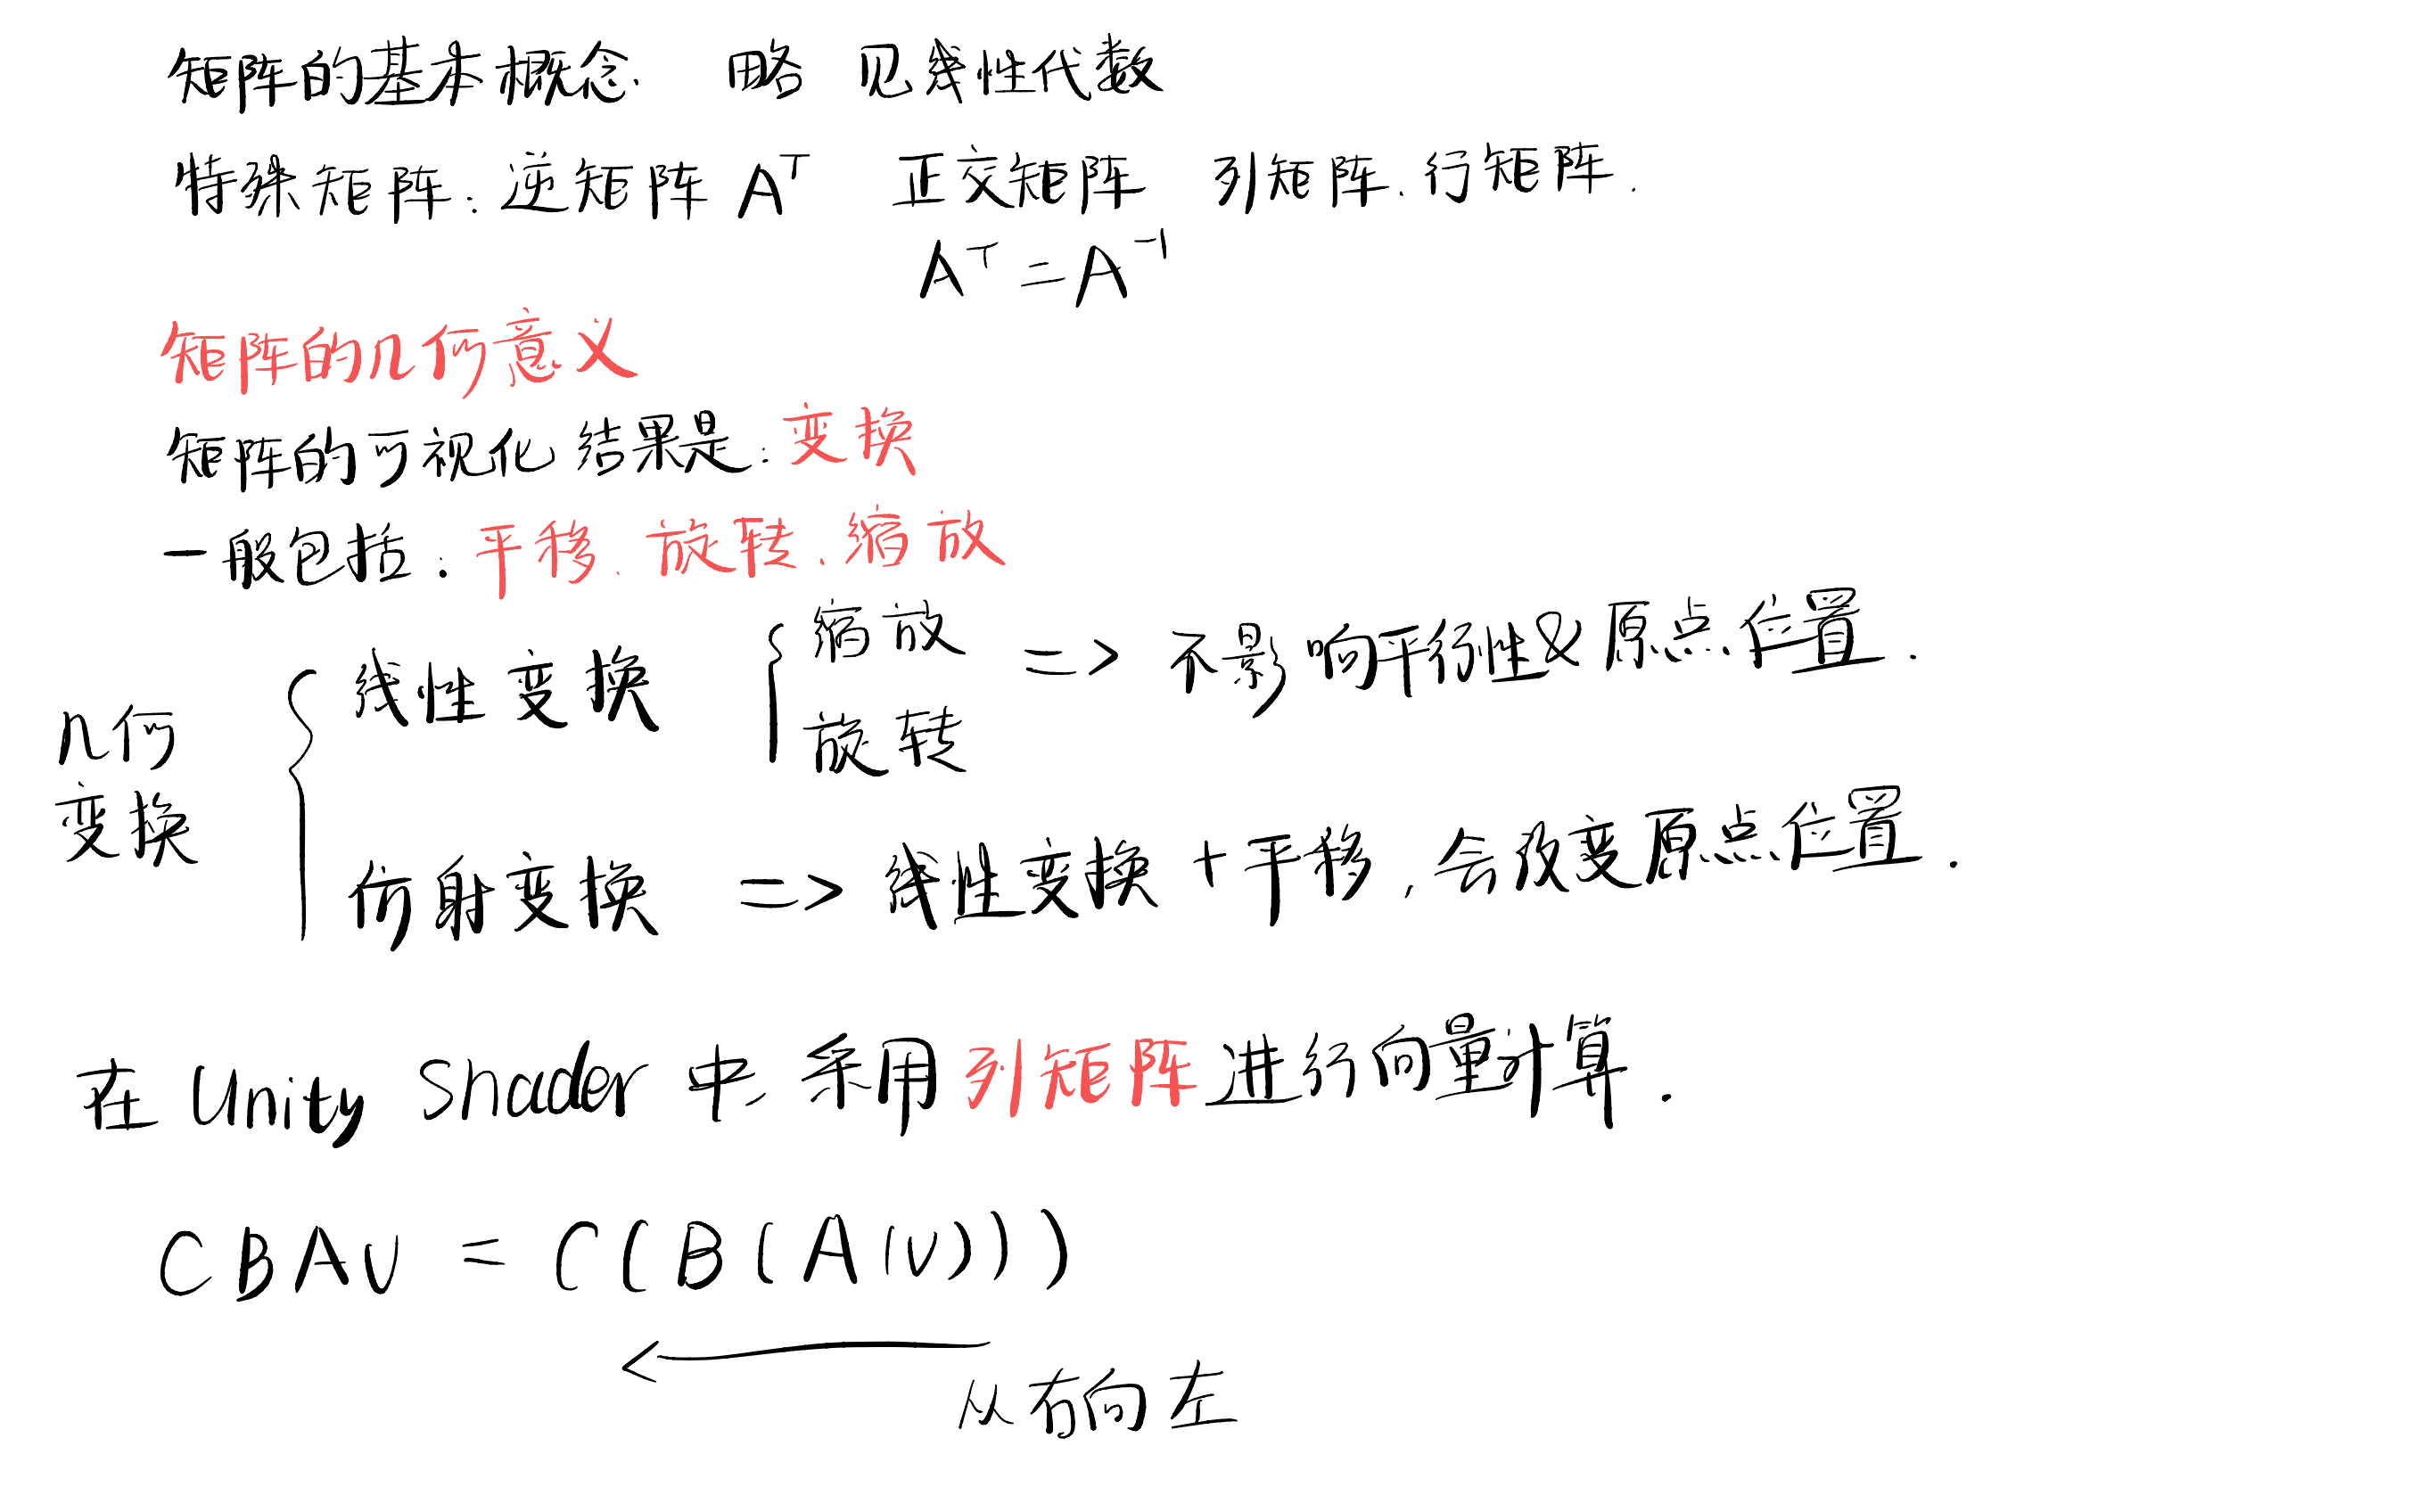 矩阵的基本概念. 略 见线性代数
特殊矩阵: 逆矩阵 Aᵀ 正交矩阵 列矩阵、行矩阵.
Aᵀ = A⁻¹
矩阵的几何意义
矩阵的可视化结果是: 变换
一般包括: 平移、旋转、缩放
几何变换
线性变换 { 缩放 旋转 => 不影响平行性&原点位置.
仿射变换 => 线性变换+平移, 会改变原点位置.
在 Unity Shader 中, 采用列矩阵进行向量计算.
CBAv = C(B(A(v)))
从右向左